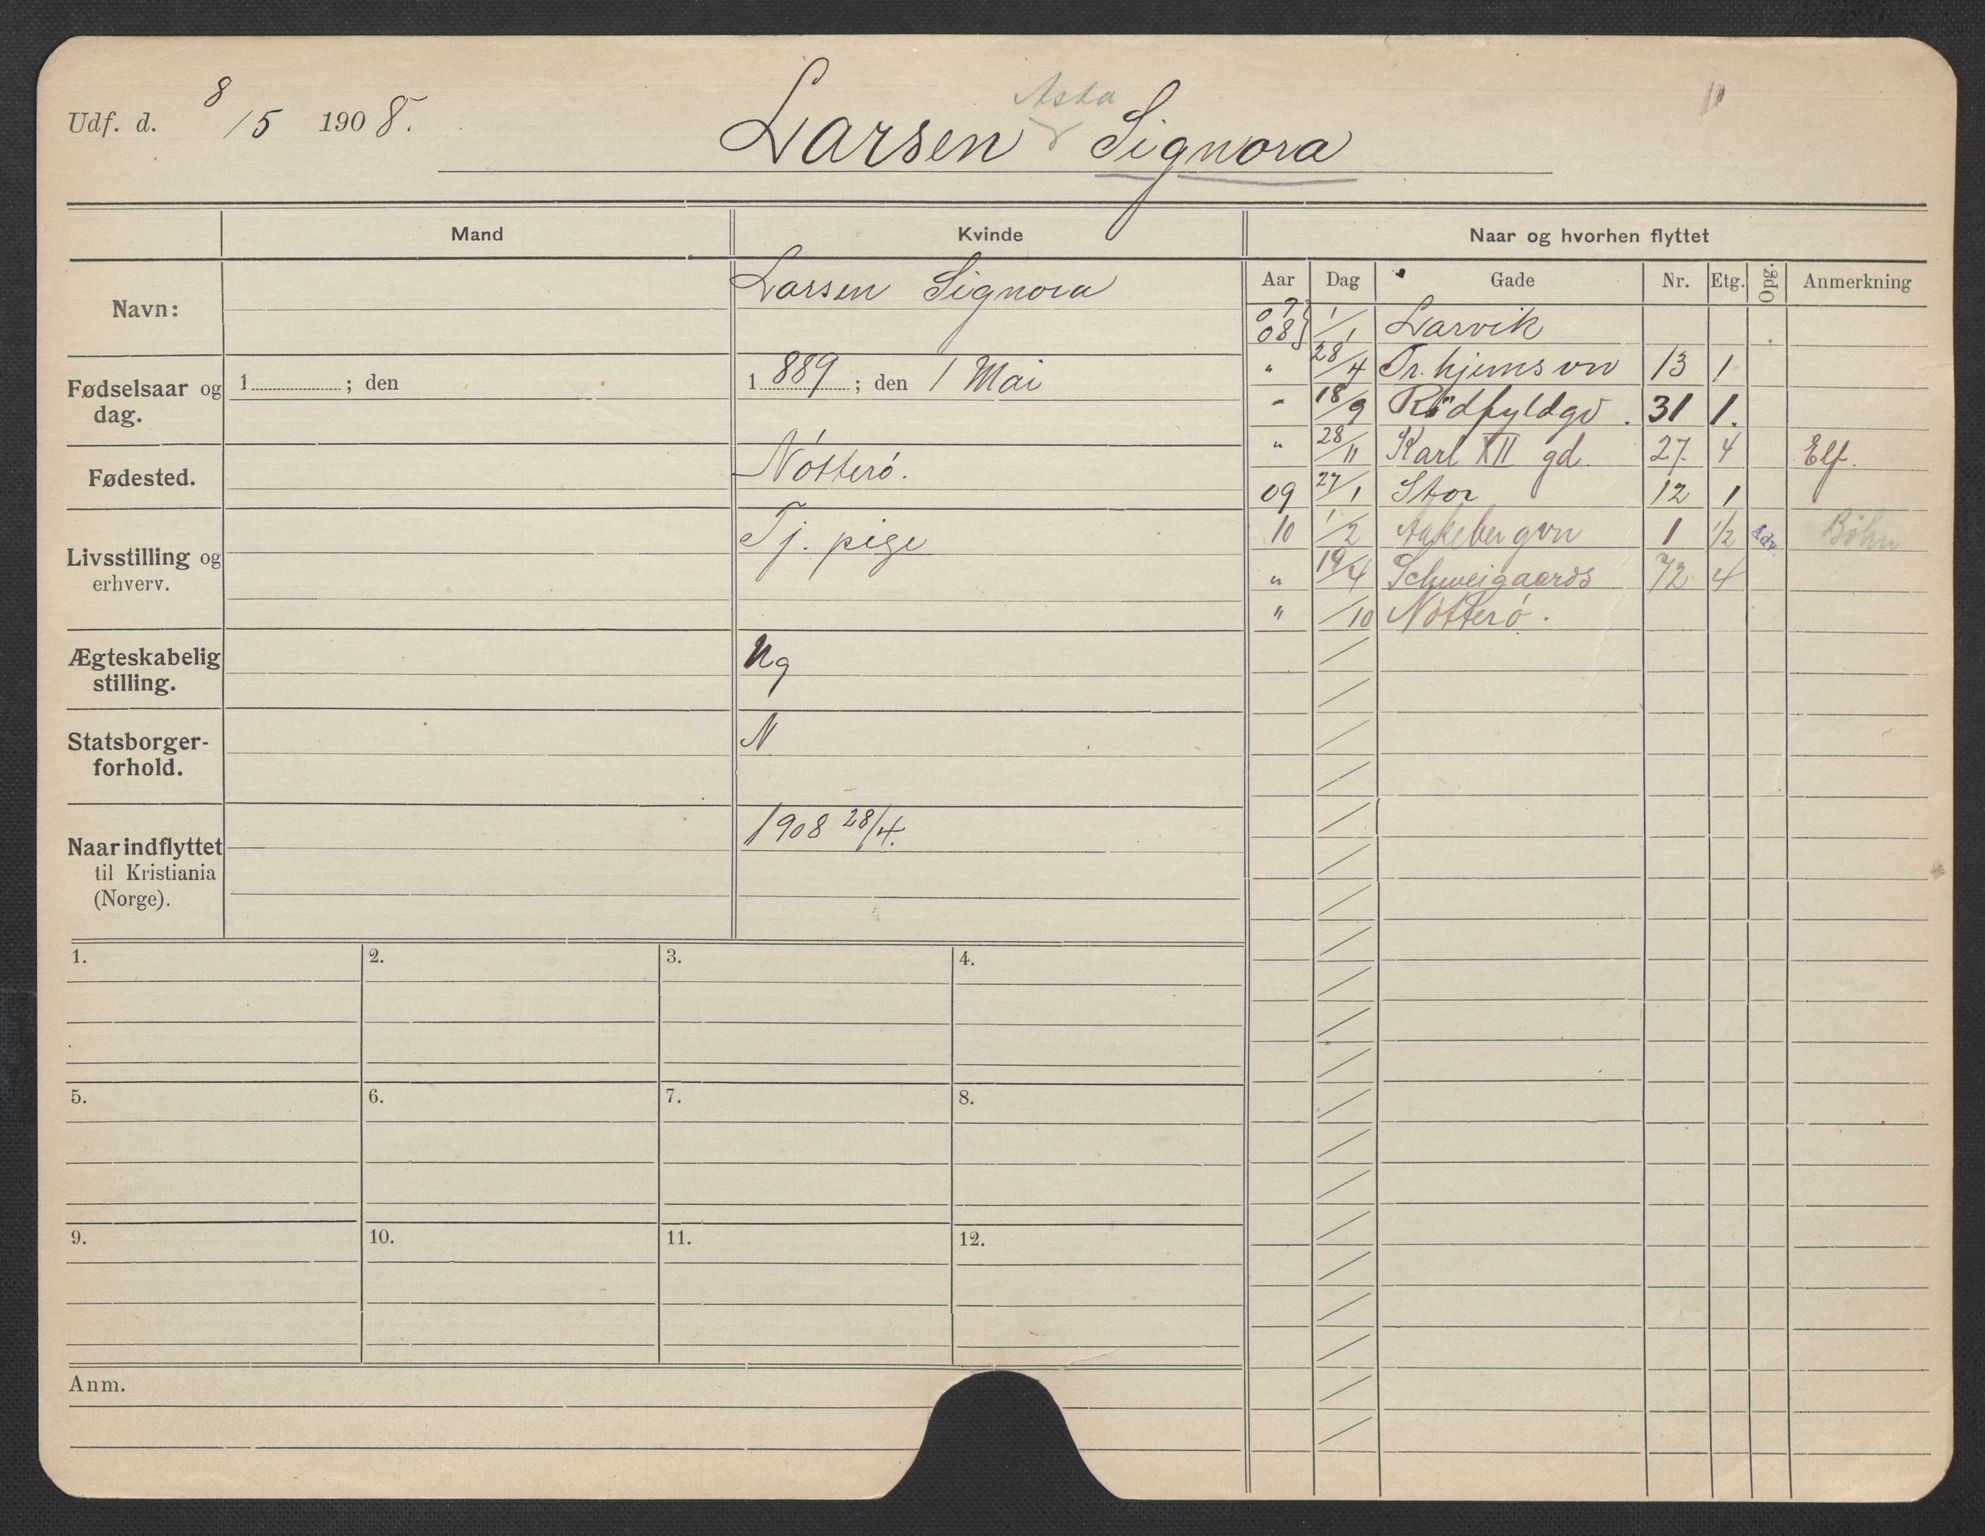 Udf. d. 8/5 1908.
Asta
Larsen Signora
Mand Kvinde Naar og hvorhen flyttet
Aar Dag Gade Nr. Etg. Opg. Anmerkning
Navn: Larsen Signora
Fødselsaar og dag. 1 ; den 1889 ; den 1 Mai
Fødested. Nötterö.
Livsstilling og erhverv. Tj. pige
Ægteskabelig stilling. Ug
Statsborger-forhold. N
Naar indflyttet til Kristiania (Norge). 1908 28/4.
07 08 } 1/1 Larvik
" 28/4 Tr.hjemsvn 13 1
" 18/9 Rödfyldgd. 31 1.
" 28/11 Karl XII gd. 27 4 Elf.
09 27/1 Stor 12 1
10 1/2 Aakebergvn 1 1/2 Adv. Bøhn
" 19/4 Schweigaards 72 4
" /10 Nötterö.
1. 2. 3. 4.
5. 6. 7. 8.
9. 10. 11. 12.
Anm.